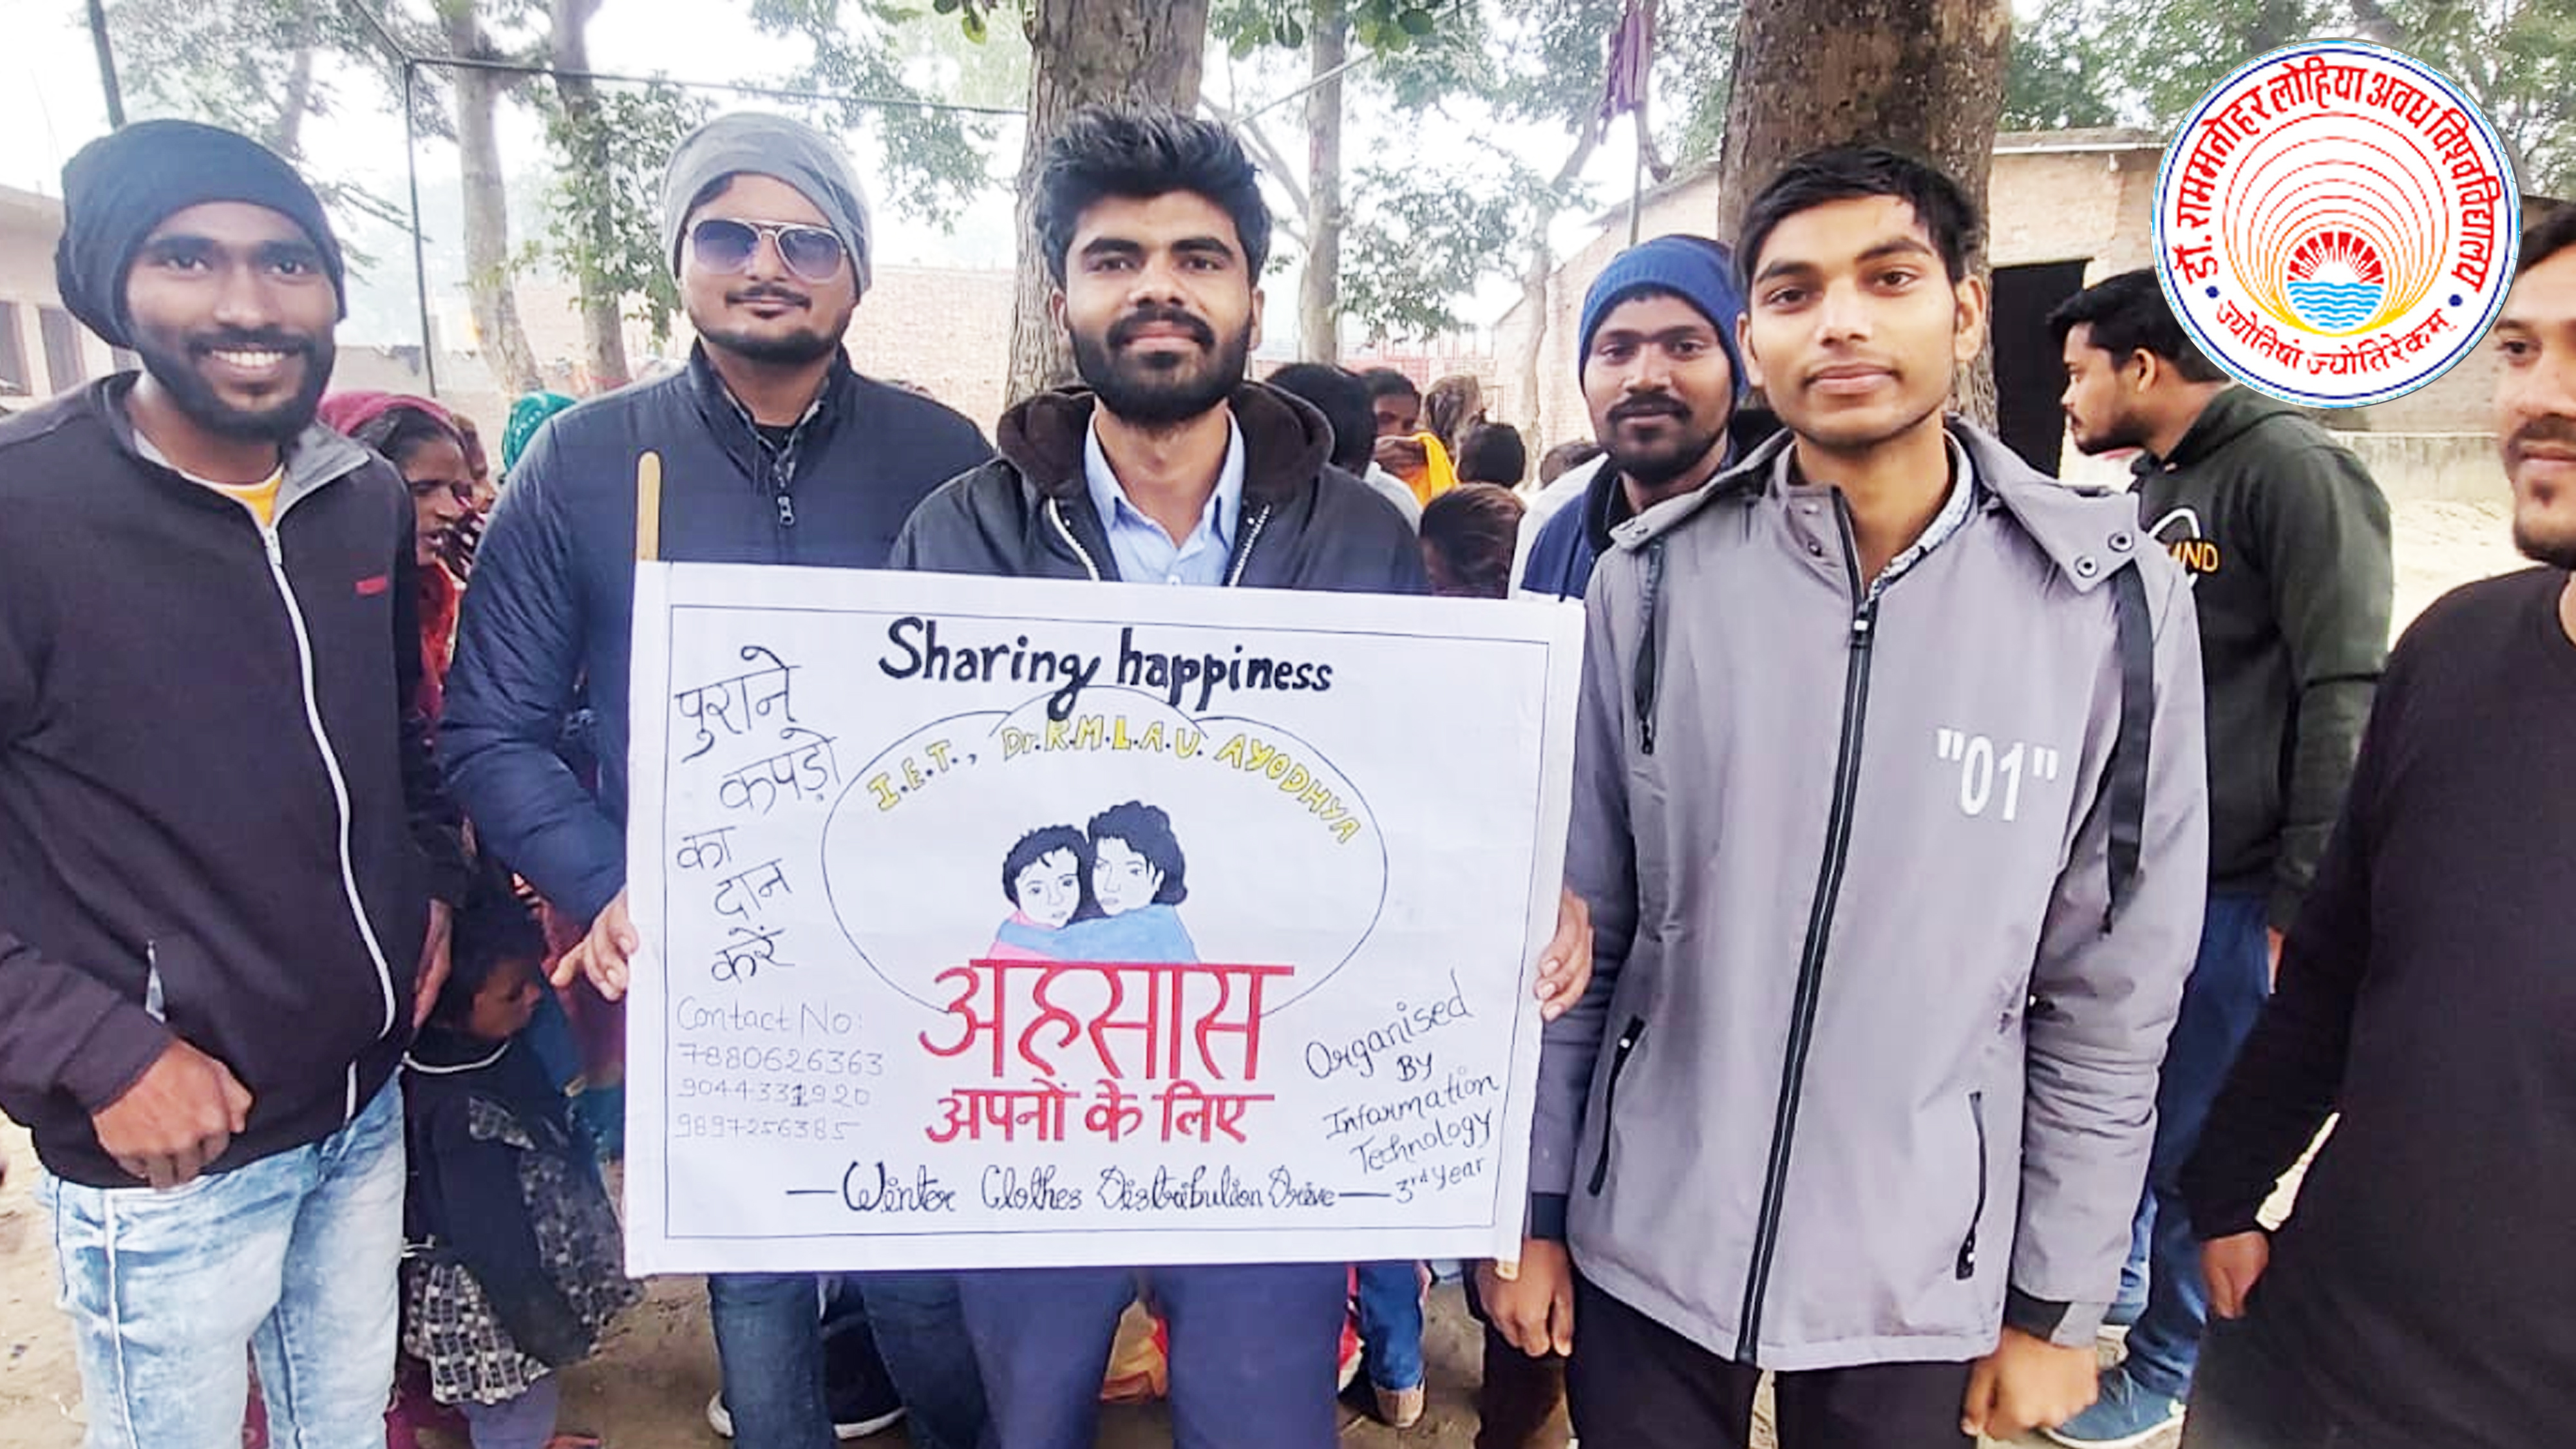 डॉ. राममनोहर लोहिया अवध विश्वविद्यालय
ज्योतिषां ज्योतिरेकम्
"01"
Sharing happiness
I.E.T., Dr.R.M.L.A.U. AYODHYA
पुराने
कपड़ो
का
दान
करें
Contact No:
7880626363
9044331920
9897256385
अहसास
अपनों के लिए
Organised
By
Information
Technology
3rd Year
— Winter Clothes Distribution Drive —